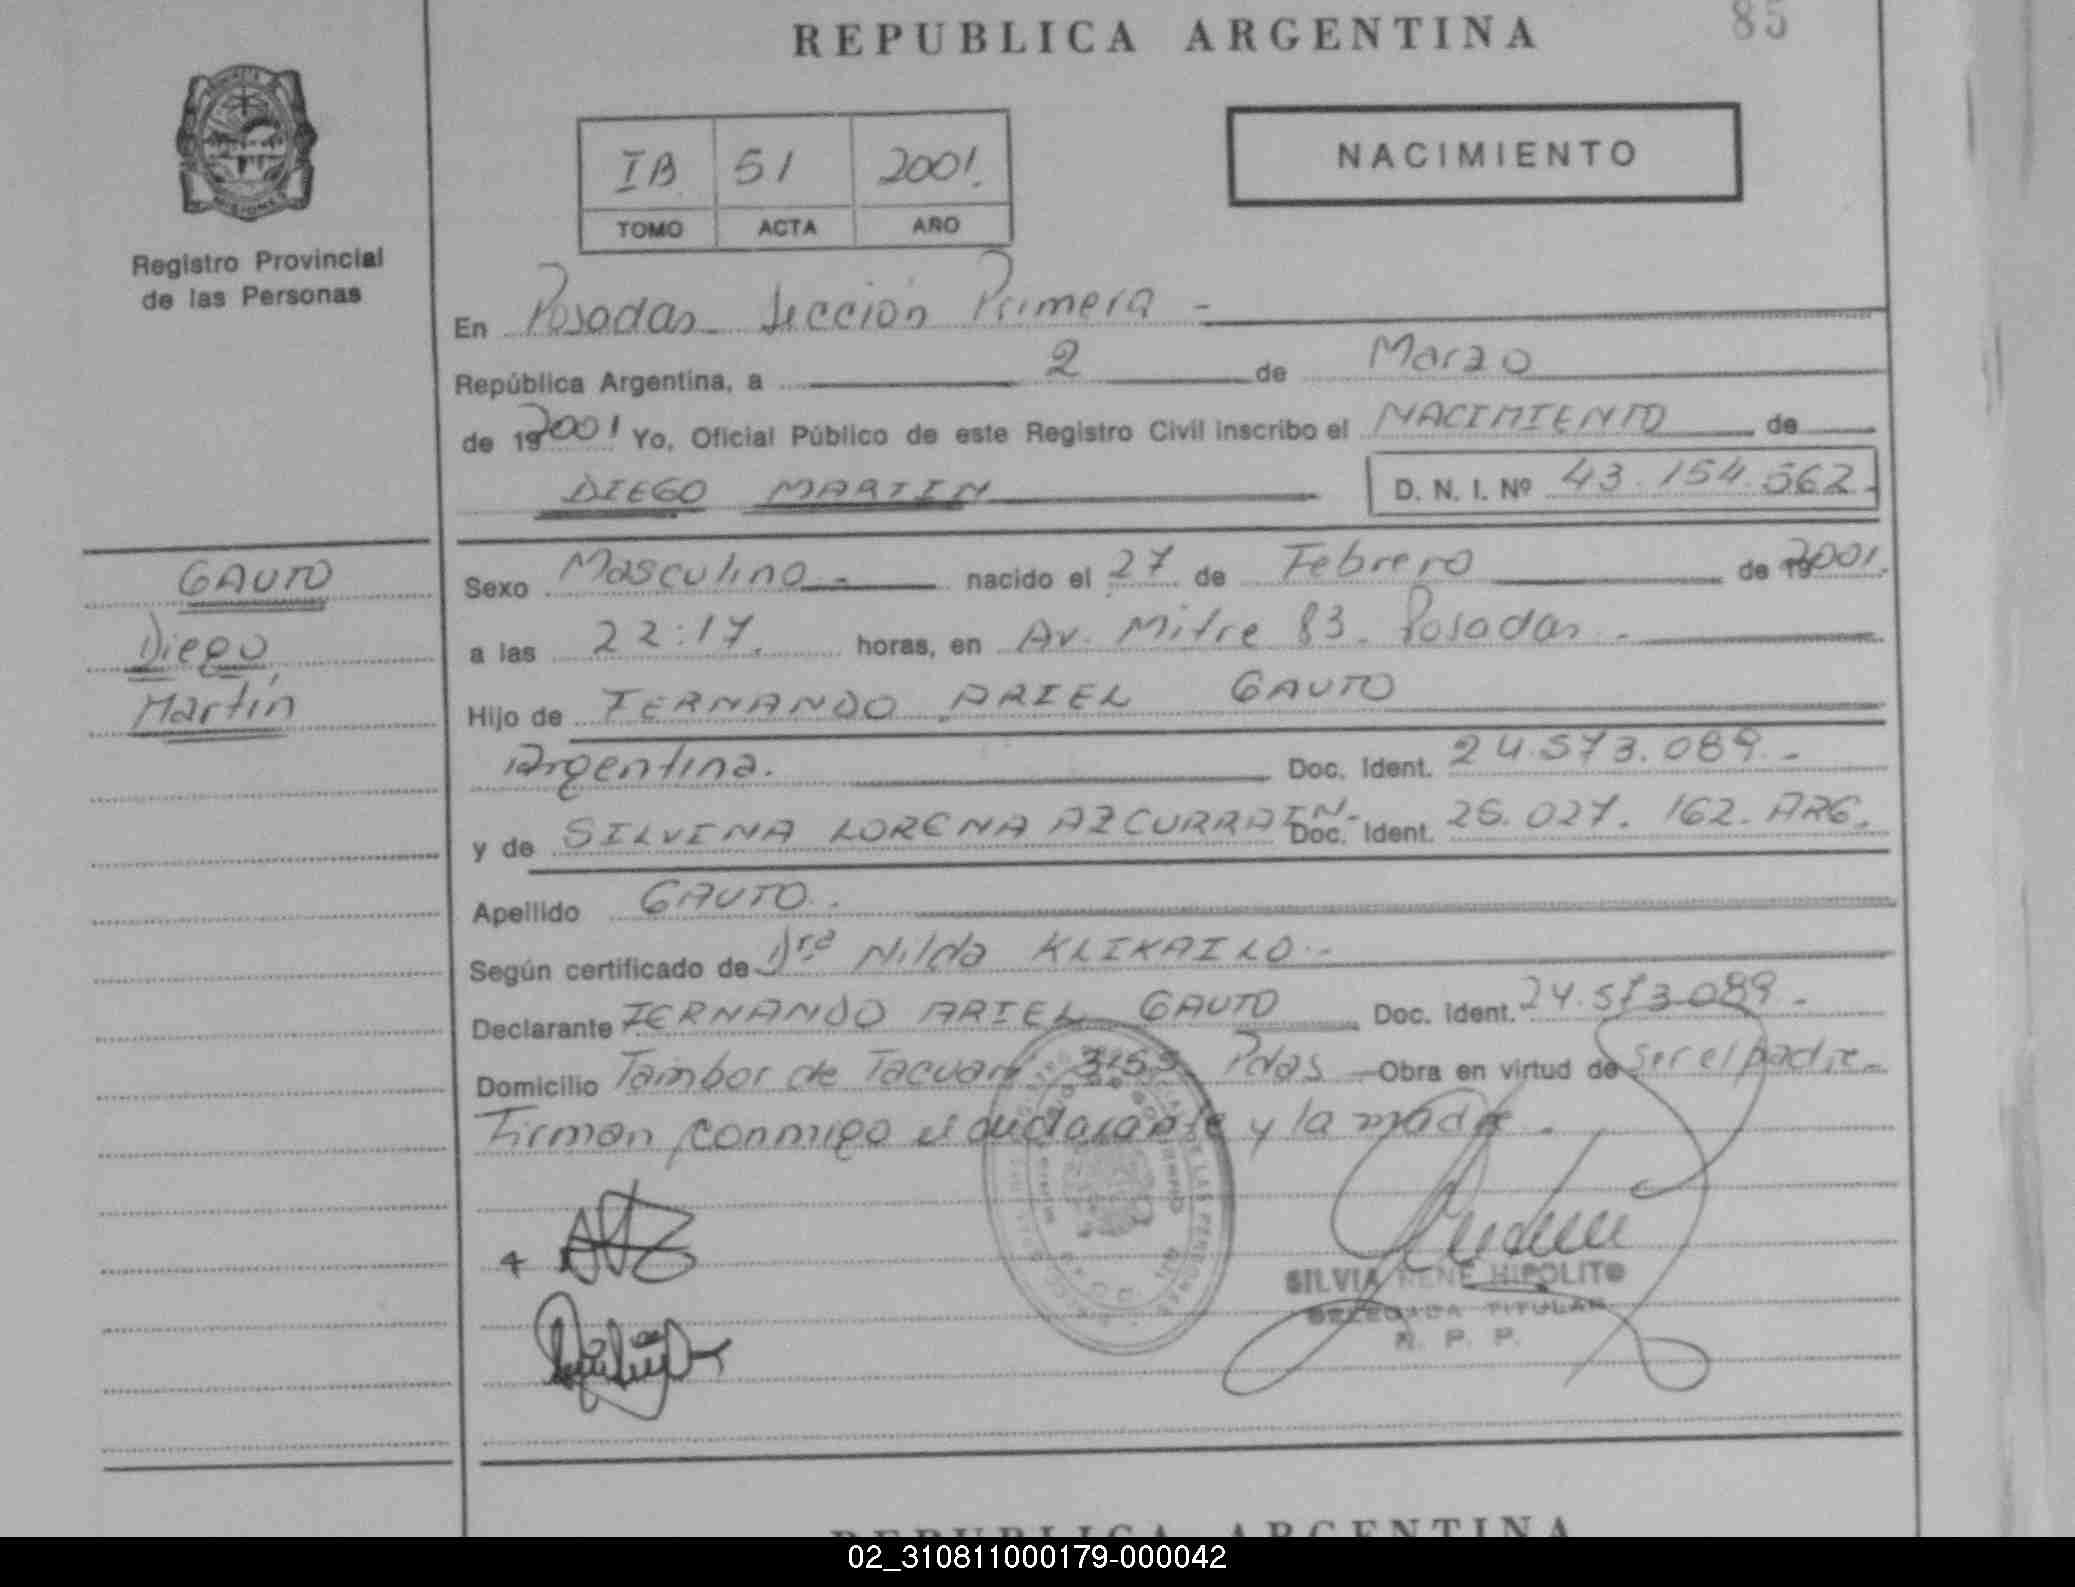 REPUBLICA ARGENTINA
85
Registro Provincial
de las Personas
IB 51 2001.
TOMO ACTA AÑO
NACIMIENTO
En Posadas Sección Primera -
República Argentina, a 2 de Marzo
de 19 2001 Yo, Oficial Público de este Registro Civil inscribo el NACIMIENTO de
DIEGO MARTIN D. N. I. Nº 43.154.562.-
GAUTO
Diego,
Martín
Sexo Masculino - nacido el 27 de Febrero de 19 2001.
a las 22:17. horas, en Av. Mitre 83. Posadas -
Hijo de FERNANDO ARIEL GAUTO
Argentina. Doc. Ident. 24.573.089.-
y de SILVINA LORENA AZCURRAIN.- Doc. Ident. 25.027.162. ARG.
Apellido GAUTO.
Según certificado de Dra Nilda KLIKAILO.-
Declarante FERNANDO ARIEL GAUTO Doc. Ident. 24.573.089.-
Domicilio Tambor de Tacuarí 3155 Pdas Obra en virtud de ser el padre.-
Firman conmigo el declarante y la madre.-
SILVIA RENE HIPOLITO
DELEGADA TITULAR
R. P. P.
REPUBLICA ARGENTINA
02_310811000179-000042